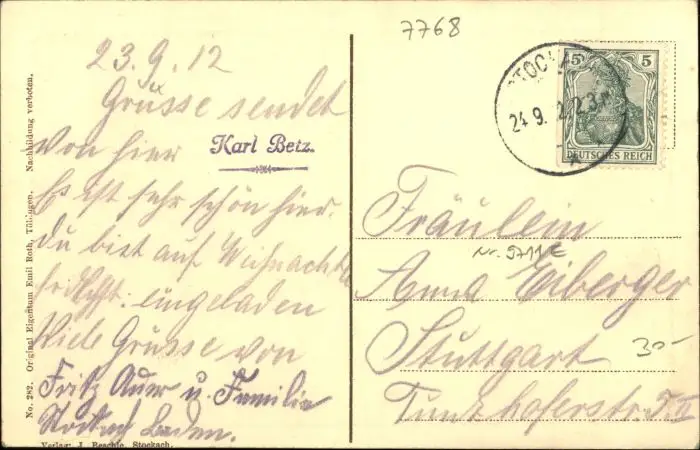 7768
23.9.12
Grüsse sendet
von hier
Karl Betz.
Es ist sehr schön hier.
du bist auf Weihnachten
eingeladen
Viele Grüsse von
Fritz Auer u. Familie
Stockach Baden.
No. 282. Original Eigentum Emil Roth, Tübingen. Nachbildung verboten.
Verlag: J. Beschle, Stockach.
STOCKA
24.9.12 2-3N
5 5
DEUTSCHES REICH
Fräulein
Nr. 5711E
Anna Eiberger
Stuttgart
30-
Tunzhoferstr. 5. II